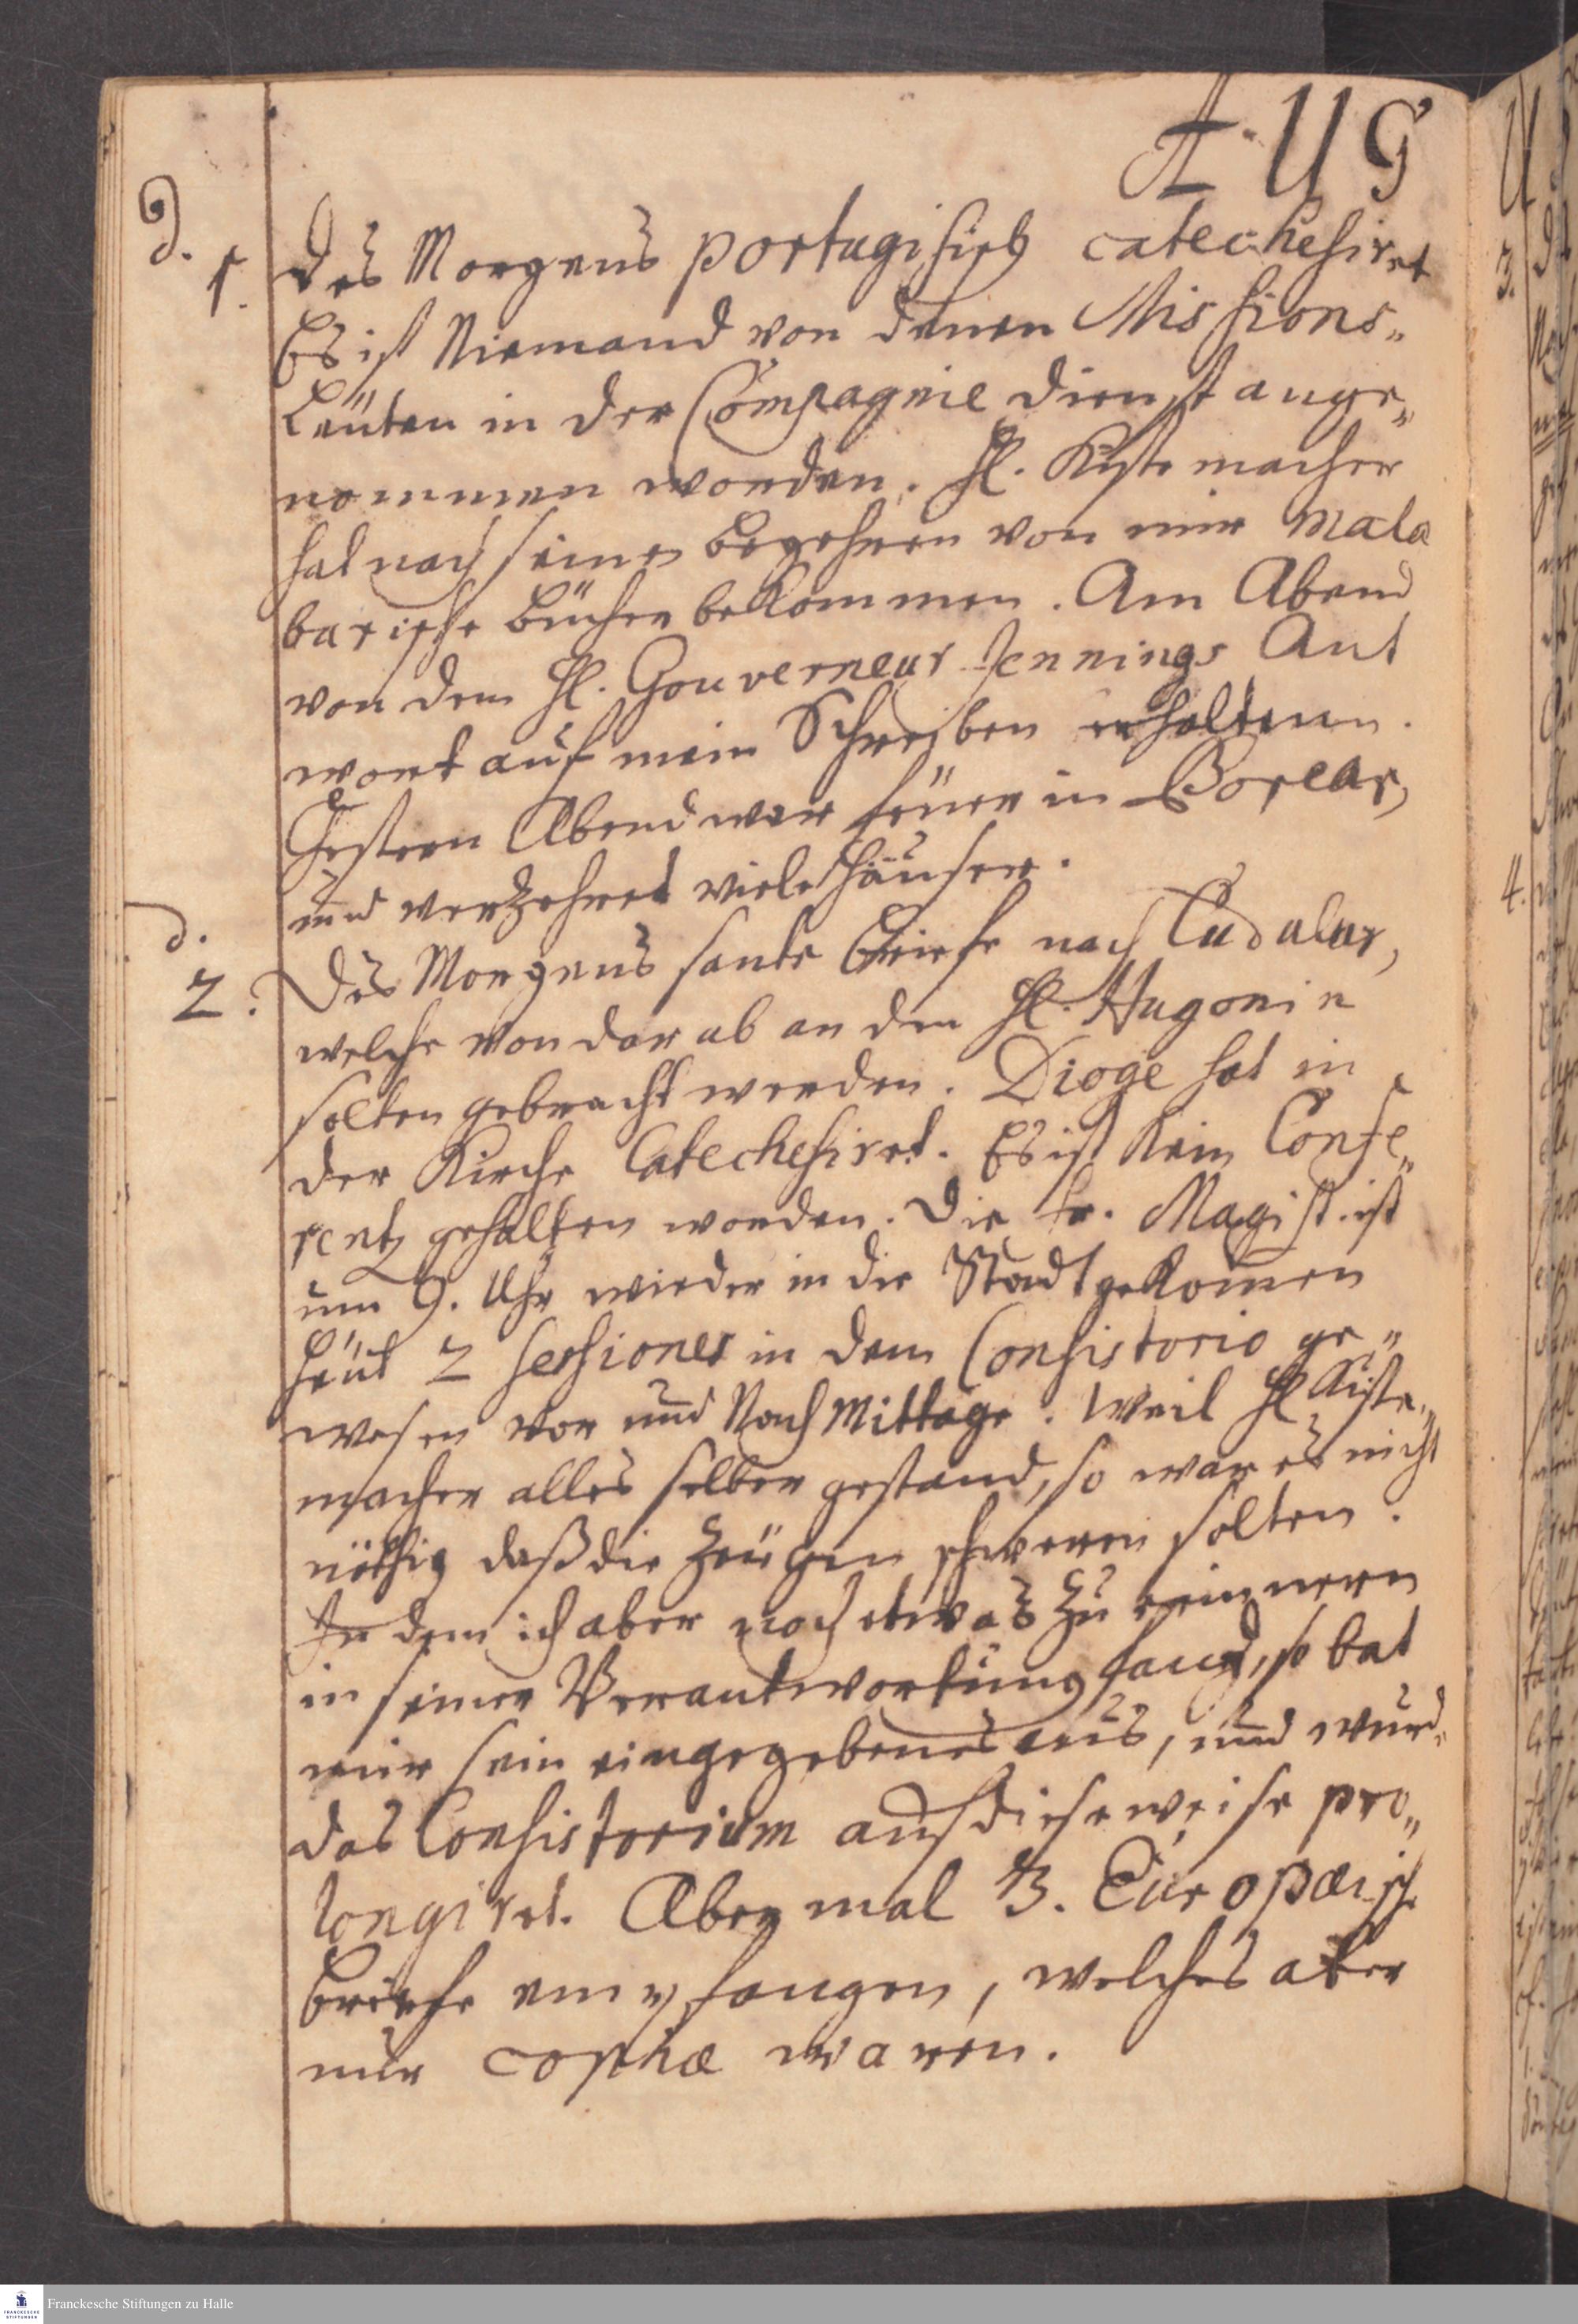 AUG
d. 1. Des Morgens portugisisch catechesiret
Es ist Niemand von denen Missions„
Leuten in der Compagnie Dienst ange„
nommen worden. H. Kistemacher
hat nach seinem begehren von mir Mala
barische bücher bekommen. Am Abend
von dem H. Gouverneur Jennings Ant
wort auf mein Schreiben erhaltenn.
Gestern Abend war feüer in Borear,
und verzehret viele Häuser.
d. 2. Des Morgens sante Briefe nach Cudulur,
welche von dar ab an den H. Hugonin
solten gebracht werden. Dioge hat in
der Kirche Catechesiret. Es ist kein Confe„
rentz gehalten worden. Die fr. Magist. ist
um 9. Uhr wieder in die Stadt gekommen
heüt 2 sessiones in dem Consistorio ge„
wesen vor und Nach Mittage. Weil H Kiste„
macher alles selber gestand, so war es nicht
nöthig daß die Zeügen schweren solten.
In dem ich aber noch etwas zu erinnern
in seiner Verantwortung fand, so bat
mir sein eingegebenes aus, und wurd„
das Consistorium auf diese weise pro„
longiret. Abermal 3. Europæische
briefe empfangen, welches aber
nur copiæ waren.
3.
4.
Franckesche Stiftungen zu Halle